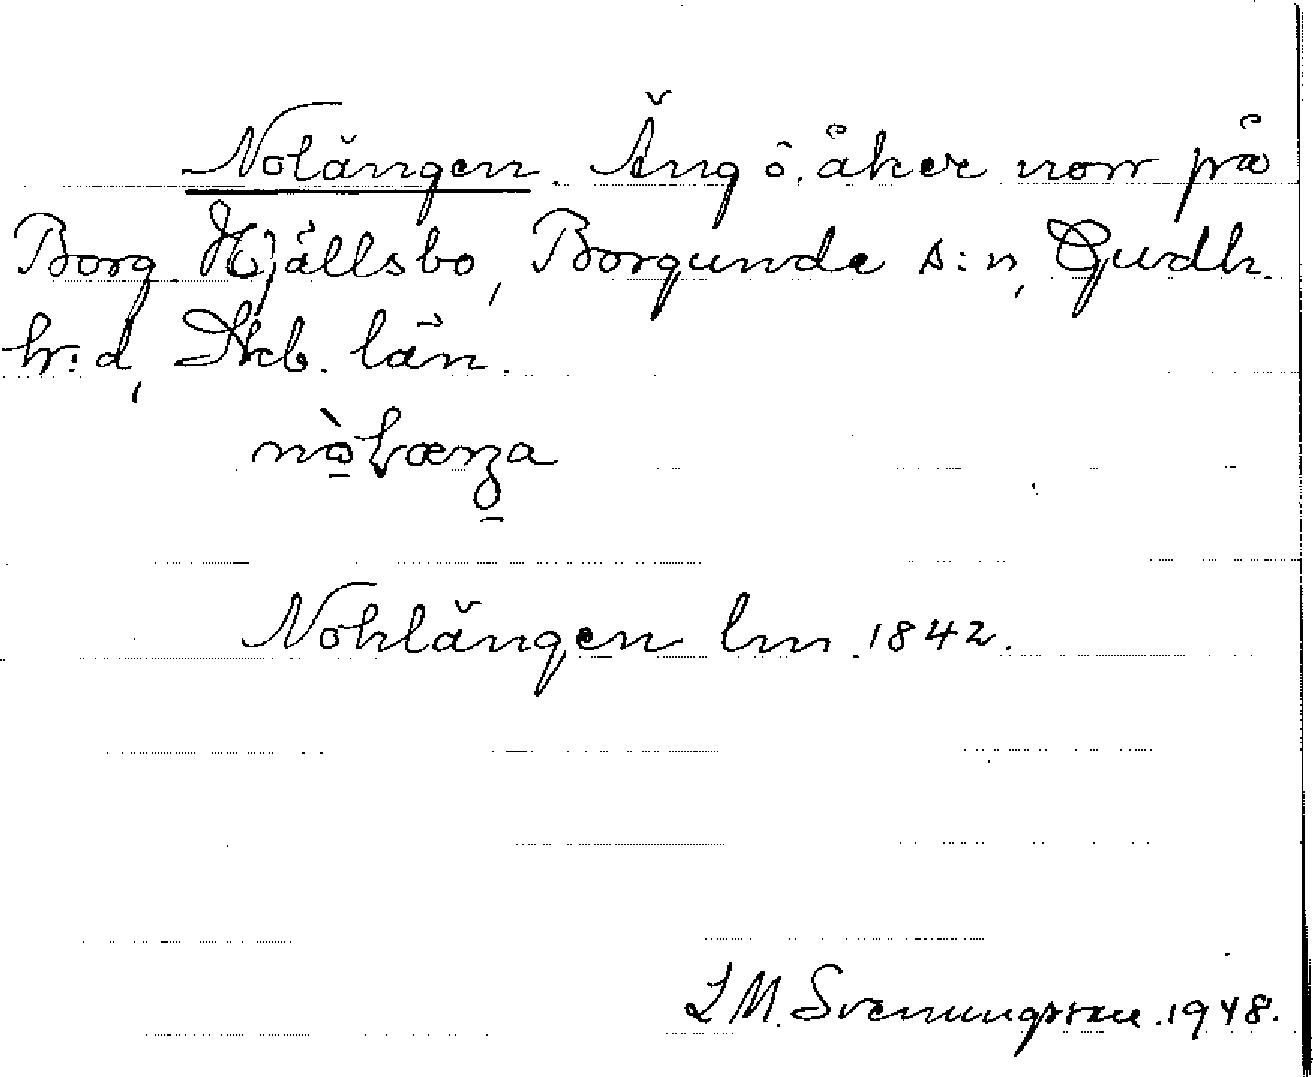 Nolängen. Äng o. åker norr på
Borg Hjällsbo, Borgunda s:n, Gudh.
h:d, Skb. län.
Nohlängen lm. 1842.
L M. Svenungsson. 1948.